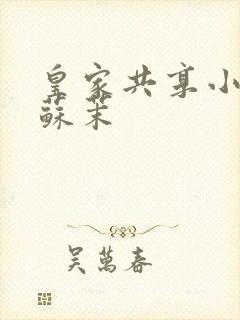 皇家共享小
蘇茉
吴萬春